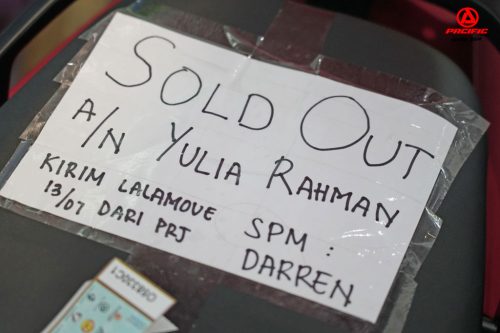 PACIFIC
SOLD OUT
A/N YULIA RAHMAN
KIRIM LALAMOVE
13/07 DARI PRJ
SPM :
DARREN